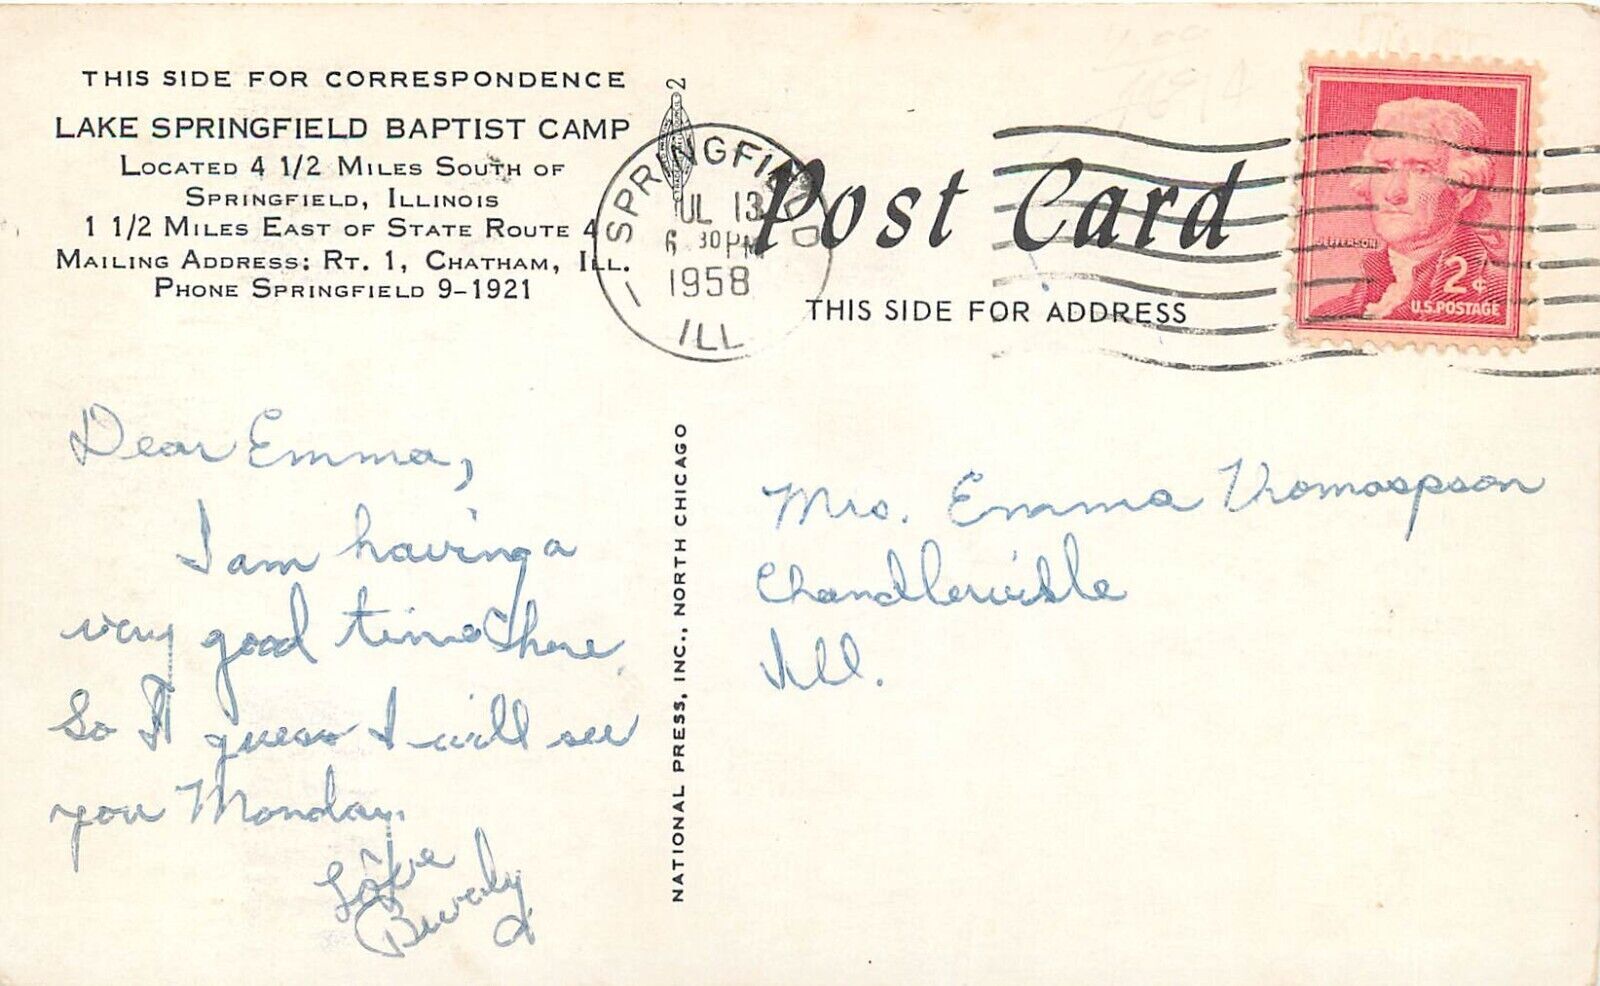 THIS SIDE FOR CORRESPONDENCE
LAKE SPRINGFIELD BAPTIST CAMP
LOCATED 4 1/2 MILES SOUTH OF
SPRINGFIELD, ILLINOIS
1 1/2 MILES EAST OF STATE ROUTE 4
MAILING ADDRESS: RT. 1, CHATHAM, ILL.
PHONE SPRINGFIELD 9-1921
2
SPRINGFIELD
JUL 13
6 30 PM
1958
ILL
Post Card
THIS SIDE FOR ADDRESS
JEFFERSON
2¢
U.S. POSTAGE
Dear Emma,
I am having a
very good time here
So I guess I will see
you Monday.
Love
Beverly
NATIONAL PRESS, INC., NORTH CHICAGO
Mrs. Emma
Chandlerville
Ill.